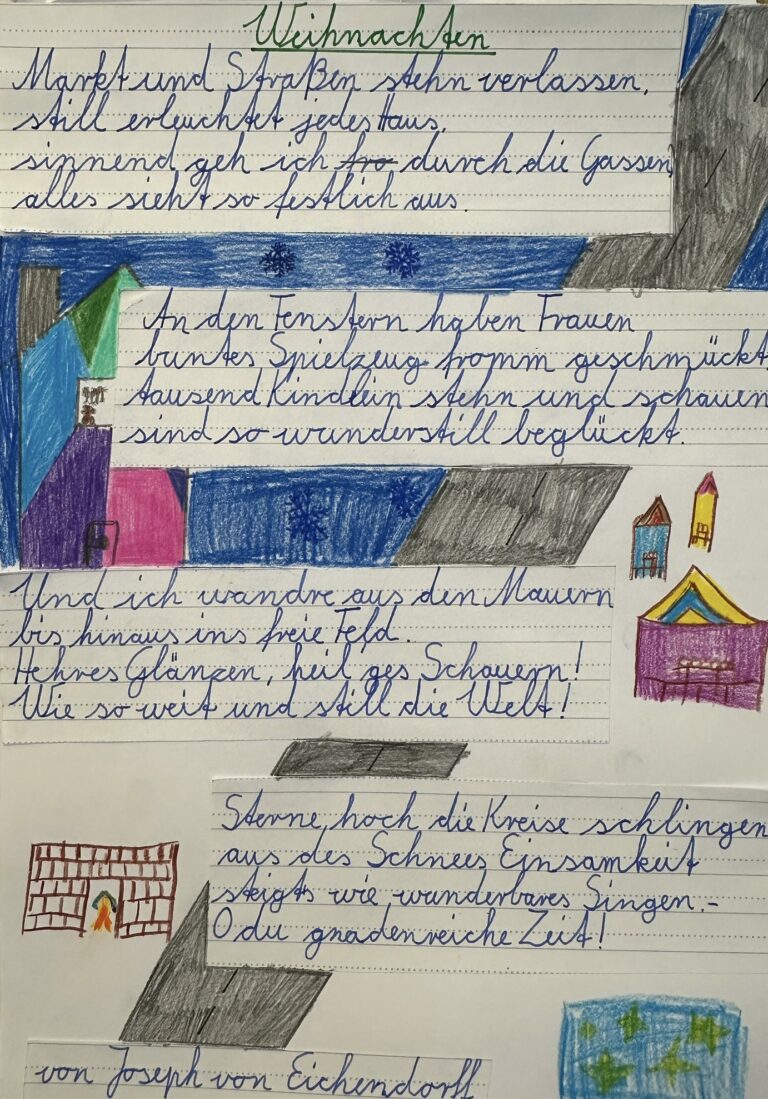 Weihnachten
Markt und Straßen stehn verlassen,
still erleuchtet jedes Haus,
sinnend geh ich fro durch die Gassen,
alles sieht so festlich aus.
An den Fenstern haben Frauen
buntes Spielzeug fromm geschmückt,
tausend Kindlein stehn und schauen
sind so wunderstill beglückt.
Und ich wandre aus den Mauern
bis hinaus ins freie Feld.
Hehres Glänzen, heil ges Schauern!
Wie so weit und still die Welt!
Sterne hoch die Kreise schlingen
aus des Schnees Einsamkeit
steigts wie wunderbares Singen.-
O du gnadenreiche Zeit!
von Joseph von Eichendorff